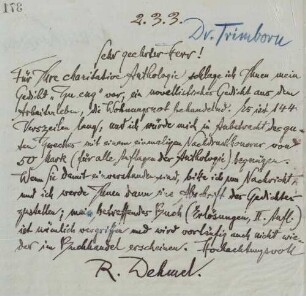 178
2. 3. 3.
Dr. Trimborn
Sehr geehrter Herr!
Für Ihre charitative Anthologie schlage ich Ihnen mein
Gedicht „ " vor, ein novellistisches Gedicht aus dem
Arbeiterleben, die Wohnungsnot behandelnd. Es ist 144
Verszeilen lang, und ich würde mich in Anbetracht des gu-
ten Zweckes mit einem einmaligen Nachdruckhonorar von
50 Mark (für alle Auflagen der Anthologie) begnügen.
Wenn Sie damit einverstanden sind, bitte ich um Nachricht,
und ich werde Ihnen dann eine Abschrift des Gedichtes
zustellen; mein betreffendes Buch (Erlösungen, II. Aufl.)
ist nämlich vergriffen und wird vorläufig auch nicht wie-
der im Buchhandel erscheinen. Hochachtungsvoll
R. Dehmel.